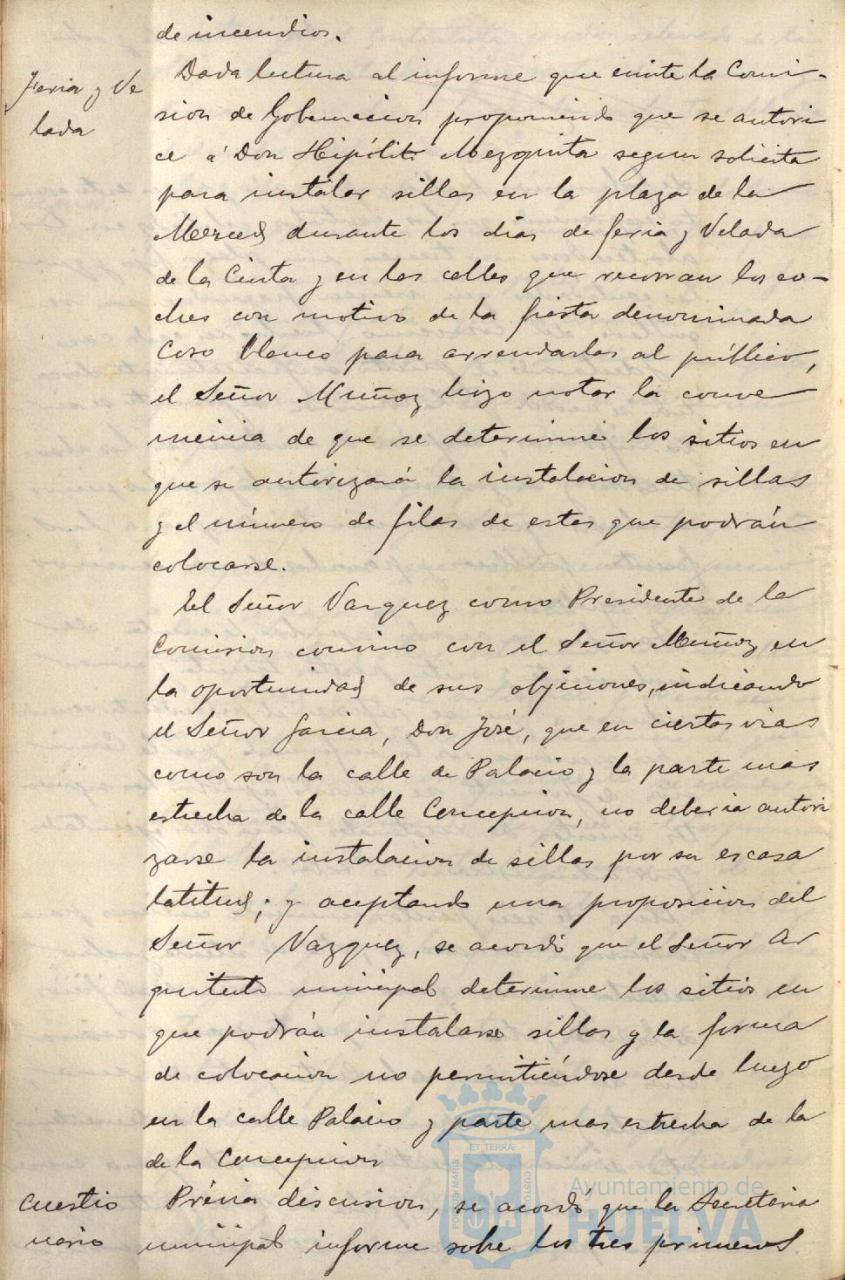 de incendios.
Feria y Ve
lada
Dada lectura al informe que emite la Comi-
sion de Gobernacion proponiendo que se autori
ce á Don Hipólito Mezquita segun solicita
para instalar sillas en la plaza de la
Merced durante los dias de feria y Velada
de la Cinta y en las calles que recorran los co-
ches con motivo de la fiesta denominada
Coso blanco para arrendarlas al público,
el Señor Muñoz hizo notar la conve
niencia de que se determine los sitios en
que se autorizará la instalacion de sillas
y el número de filas de estas que podrán
colocarse.
El Señor Vazquez como Presidente de la
Comision convino con el Señor Muñoz en
la oportunidad de sus objeciones, indicando
el Señor Garcia, Don José, que en ciertas vias
como son la calle de Palacio y la parte mas
estrecha de la calle Concepcion, no deberia autori
zarse la instalacion de sillas por su escasa
latitud; y aceptando una proposicion del
Señor Vazquez, se acordó que el Señor Ar
quitecto municipal determine los sitios en
que podrán instalarse sillas y la forma
de colocacion no permitiéndose desde luego
en la calle Palacio y parte mas estrecha de la
de la Concepcion
Cuestio
nario
Prévia discusion, se acordó que la Secretaria
municipal informe sobre los tres primeros
ET TERRA
PORTUS MARIS
CUSTODIA
Ayuntamiento de
HUELVA